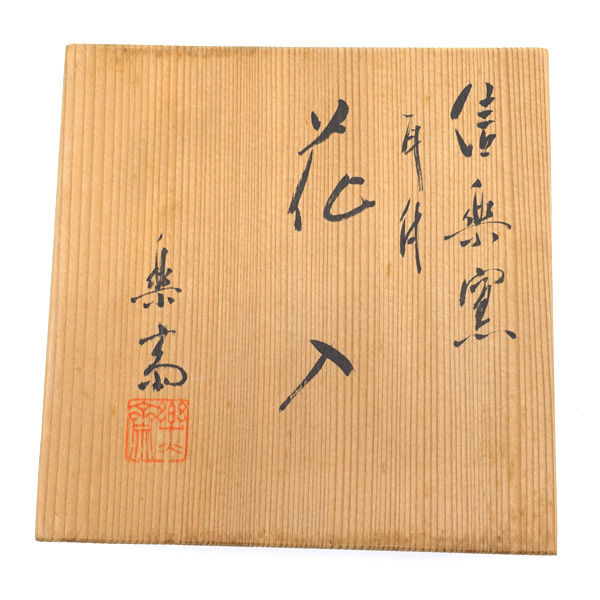 信楽窯
耳付
花入
楽斎
樂斎